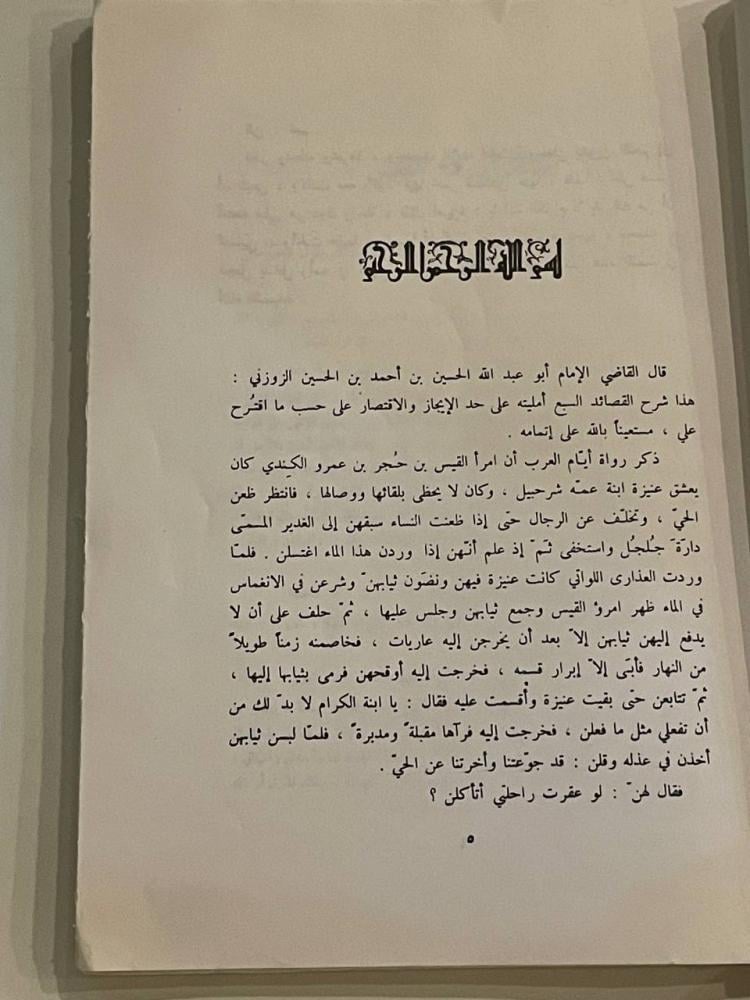 بسم الله الرحمن الرحيم
قال القاضي الإمام أبو عبد الله الحسين بن أحمد بن الحسين الزوزني :
هذا شرح القصائد السبع أمليته على حد الإيجاز والاقتصار على حسب ما اقتُرح
علي ، مستعيناً بالله على إتمامه .
ذكر رواة أيّام العرب أن امرأ القيس بن حُجر بن عمرو الكِندي كان
يعشق عنيزة ابنة عمّه شرحبيل ، وكان لا يحظى بلقائها ووصالها ، فانتظر ظعن
الحيّ ، وتخلّف عن الرجال حتّى إذا ظعنت النساء سبقهن إلى الغدير المسمّى
دارَةَ جُلجُل واستخفى ثَمّ إذ علم أنّهن إذا وردن هذا الماء اغتسلن . فلمّا
وردت العذارى اللواتي كانت عنيزة فيهن ونضَون ثيابهنّ وشرعن في الانغماس
في الماء ظهر امرؤ القيس وجمع ثيابهن وجلس عليها ، ثمّ حلف على أن لا
يدفع إليهن ثيابهن إلاّ بعد أن يخرجن إليه عاريات ، فخاصمنه زمناً طويلاً
من النهار فأبَى إلاّ إبرار قسمه ، فخرجت إليه أوقحهن فرمى بثيابها إليها ،
ثمّ تتابعن حتّى بقيت عنيزة وأقسمت عليه فقال : يا ابنة الكرام لا بدّ لك من
أن تفعلي مثل ما فعلن ، فخرجت إليه فرآها مقبلةً ومدبرةً ، فلمّا لبسن ثيابهن
أخذن في عذله وقلن : قد جوّعتنا وأخرتنا عن الحيّ .
فقال لهنّ : لو عقرت راحلتي أتأكلن ؟
٥